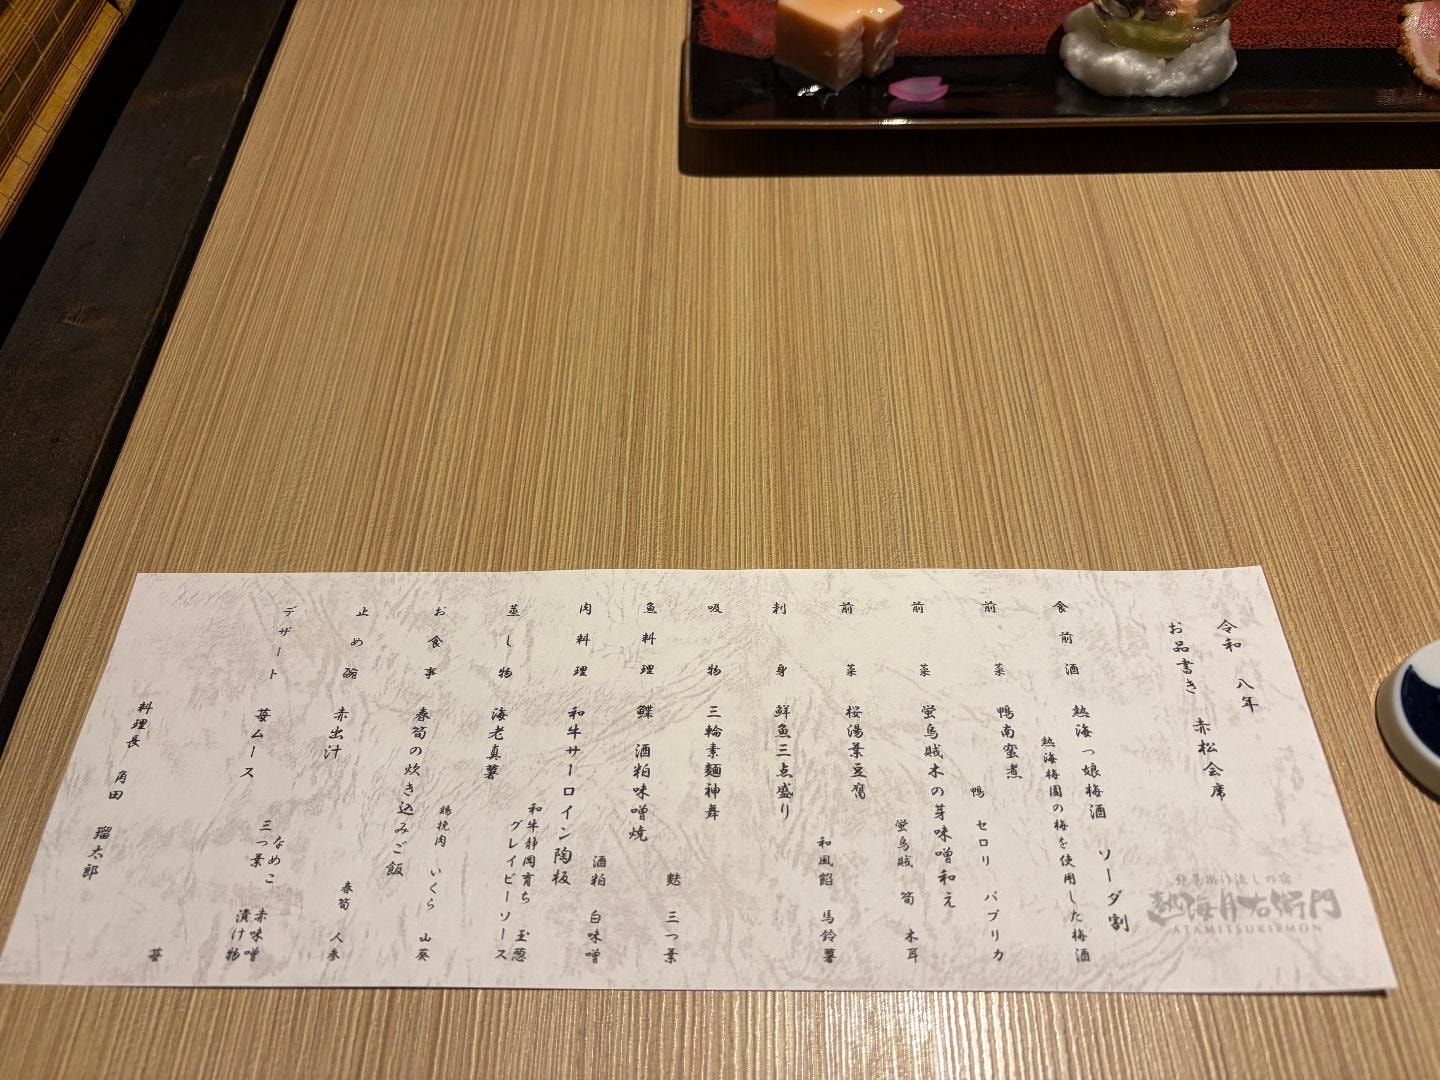 令和 八年
お品書き 赤松会席
食前酒 熱海っ娘梅酒 ソーダ割
熱海梅園の梅を使用した梅酒
前菜 鴨南蛮煮
鴨 セロリ パプリカ
前菜 蛍烏賊木の芽味噌和え
蛍烏賊 筍 木耳
前菜 桜湯葉豆腐
和風餡 馬鈴薯
刺身 鮮魚三点盛り
吸物 三輪素麺神舞
麩 三つ葉
魚料理 鰈 酒粕味噌焼
酒粕 白味噌
肉料理 和牛サーロイン陶板
和牛静岡育ち 玉葱
グレイビーソース
蒸し物 海老真薯
鶏挽肉 いくら 山葵
お食事 春筍の炊き込みご飯
春筍 人参
止め碗 赤出汁
なめこ 赤味噌
三つ葉 漬け物
デザート 苺ムース
苺
料理長 角田 瑠太郎
絶景掛け流しの宿
熱海月右衛門
ATAMITSUKIEMON